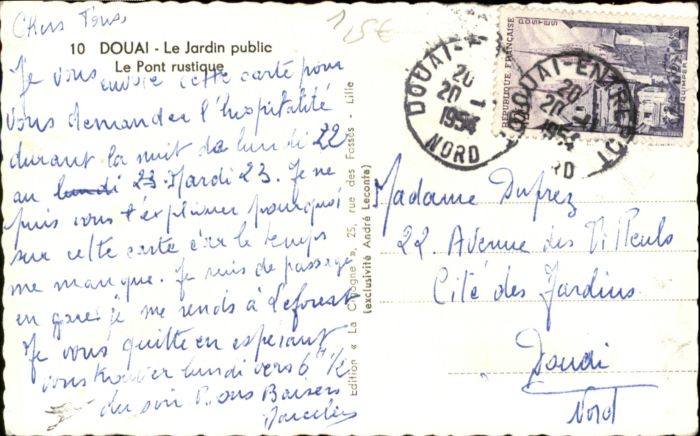 Chers Tous
1,5€
10 DOUAI - Le Jardin public
Le Pont rustique
Je vous envoie cette carte pour
vous demander l'hospitalité
durant la nuit de lundi 22
au lundi 23 Mardi 23. Je ne
puis vous l'expliquer pourquoi
sur cette carte car le temps
me manque. Je suis de passage
en gare je me rends à Leforest
Je vous quitte en espérant
vous trouver lundi vers 6H 1/2
du soir Bons Baisers
Edition « La Cigogne », 25, rue des Fossés - Lille
(exclusivité André Leconte)
POSTES
REPUBLIQUE FRANÇAISE
QUIMPER
DOUAI
20
20 - 1
1954
NORD
DOUAI-ENTREPOT
20
20
1954
RD
Madame Duprez
22 Avenue des Tilleuls
Cité des Jardins
Douai
Nord